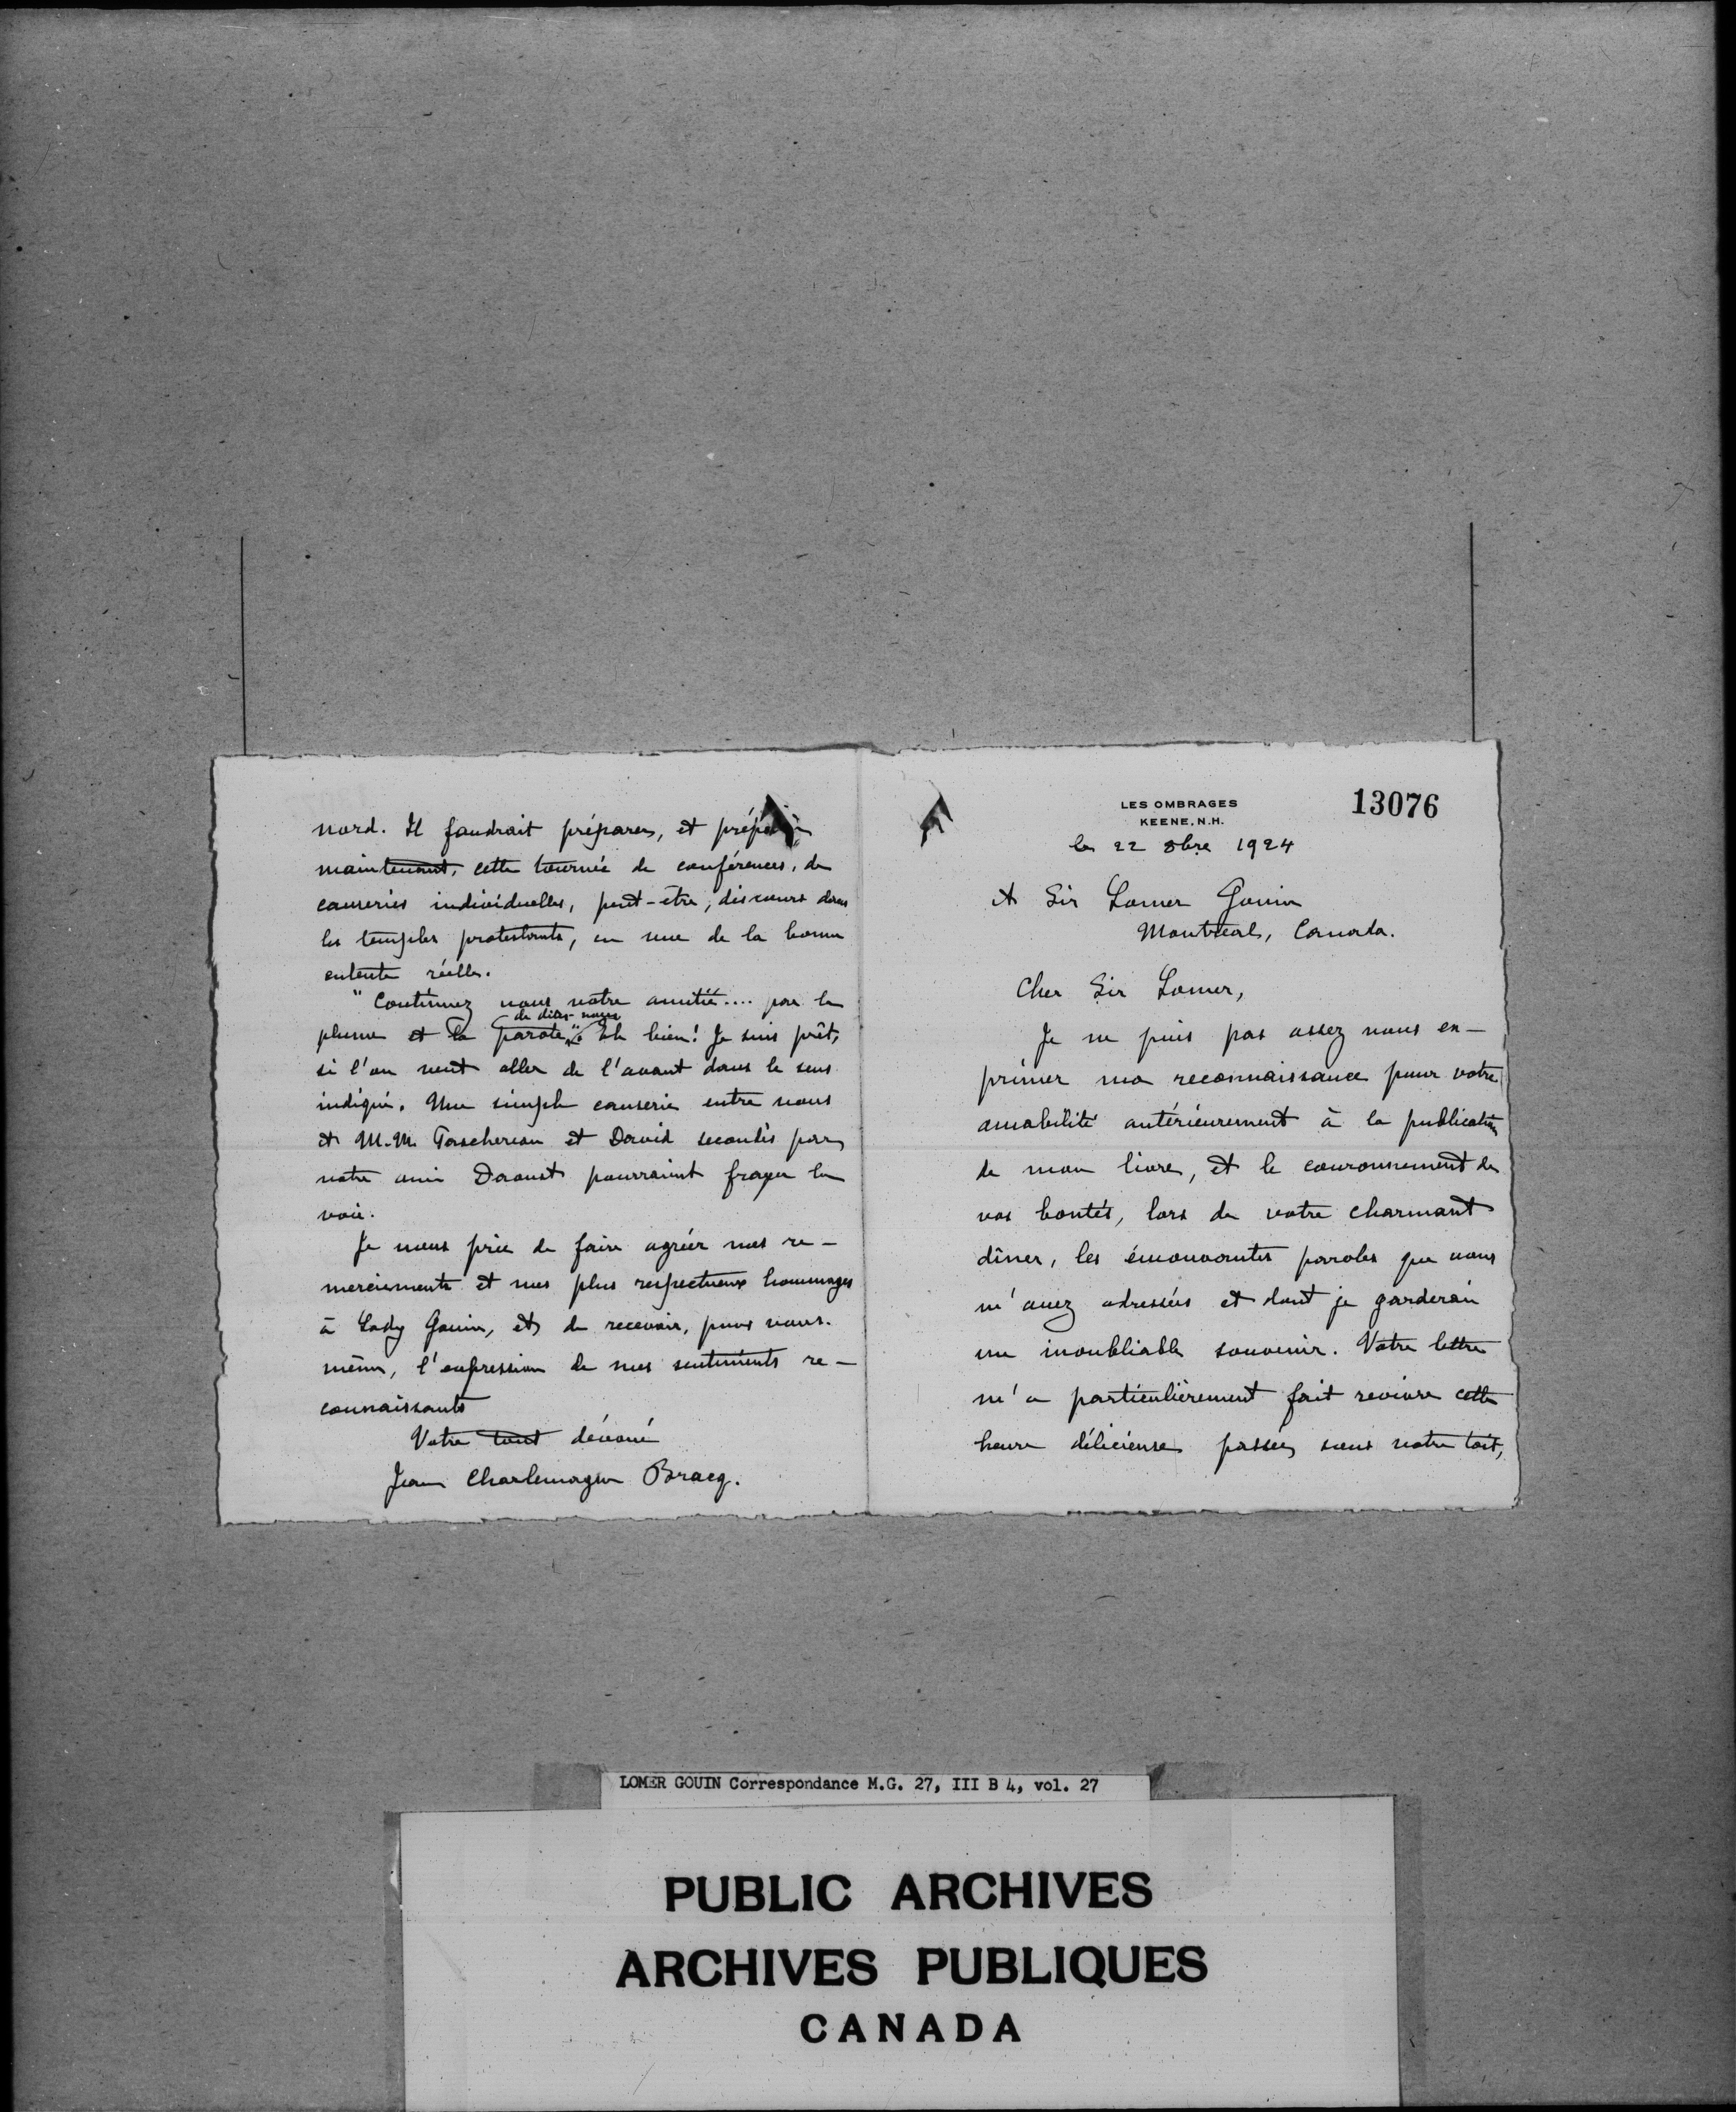 nord. Il faudrait préparer, et
maintenant, cette tournée de conférences, de
causeries individuelles, peut-être, discours dans
les temples protestants, en vue de la bonne
entente réelle.
"Continuez nous votre amitié.... par la
de dites-vous
plume et la parole". Eh bien! Je suis prêt,
si l'on veut aller de l'avant dans le sens
indiqué. Une simple causerie entre vous
et M.M. Taschereau et David secondés par
notre ami Daoust pourraient frayer la
voie.
Je vous prie de faire agréer mes re-
merciements et mes plus respectueux hommages
à Lady Gouin, et de recevoir, pour vous-
même, l'expression de mes sentiments re-
connaissants
Votre tout dévoué
Jean Charlemagne Bracq.
13076
LES OMBRAGES
KEENE, N.H.
le 22 8bre 1924
A Sir Lomer Gouin
Montreal, Canada.
Cher Sir Lomer,
Je ne puis pas assez vous ex-
primer ma reconnaissance pour votre
amabilité antérieurement à la publication
de mon livre, et le couronnement de
vos bontés, lors de votre charmant
dîner, les émouvantes paroles que vous
m'avez adressées et dont je garderai
un inoubliable souvenir. Votre lettre
m'a particulièrement fait revivre cette
heure délicieuse passée sous votre toit,
LOMER GOUIN Correspondance M.G. 27, III B 4, vol. 27
PUBLIC ARCHIVES
ARCHIVES PUBLIQUES
CANADA